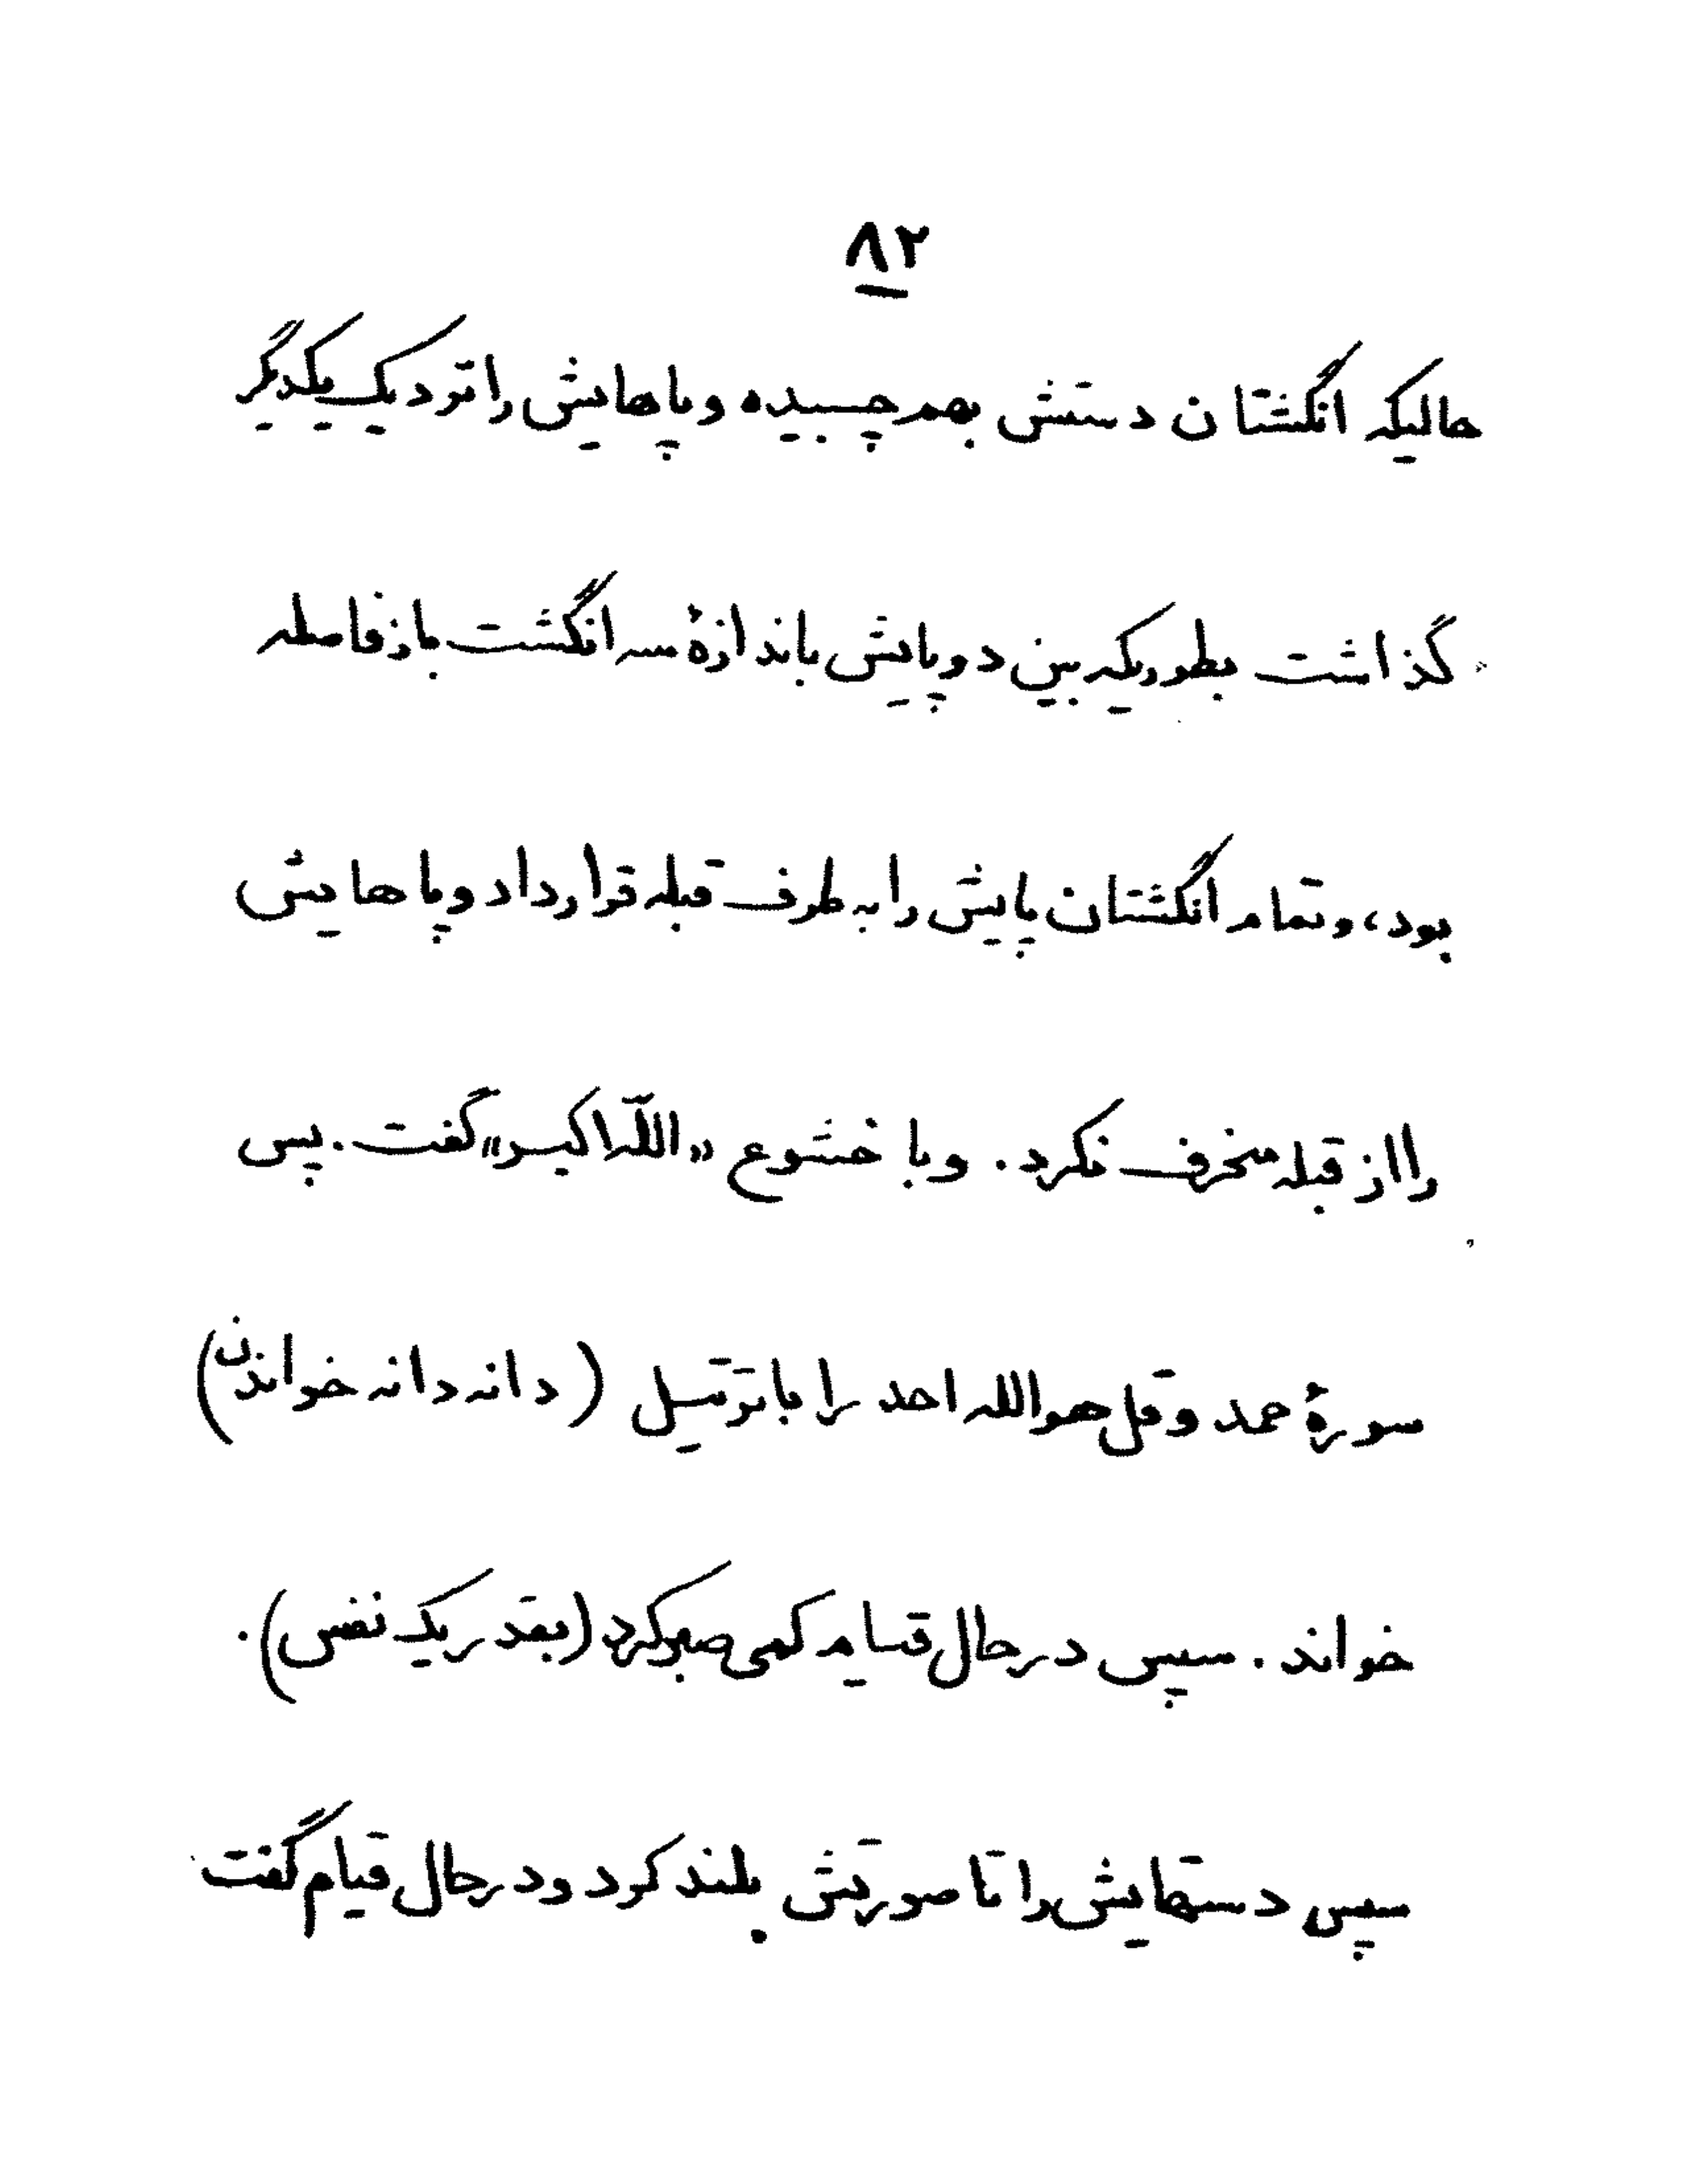 ۸۲
حالیکه انگشتان دستش بهم چسبیده و پاهایش را نزدیک یکدیگر
گذاشت بطوریکه بین دو پایش باندازهٔ سه انگشت باز فاصله
بود، و تمام انگشتان پایش را به طرف قبله قرار داد و پاهایش
را از قبله منحرف نکرد. و با خشوع «اللّه اکبر» گفت. پس
سورهٔ حمد و قل هو الله احد را با ترتیل (دانه دانه خواندن)
خواند. سپس در حال قیام کمی صبر کرد (بقدر یک نفس).
سپس دستهایش را تا صورتش بلند کرد و در حال قیام گفت